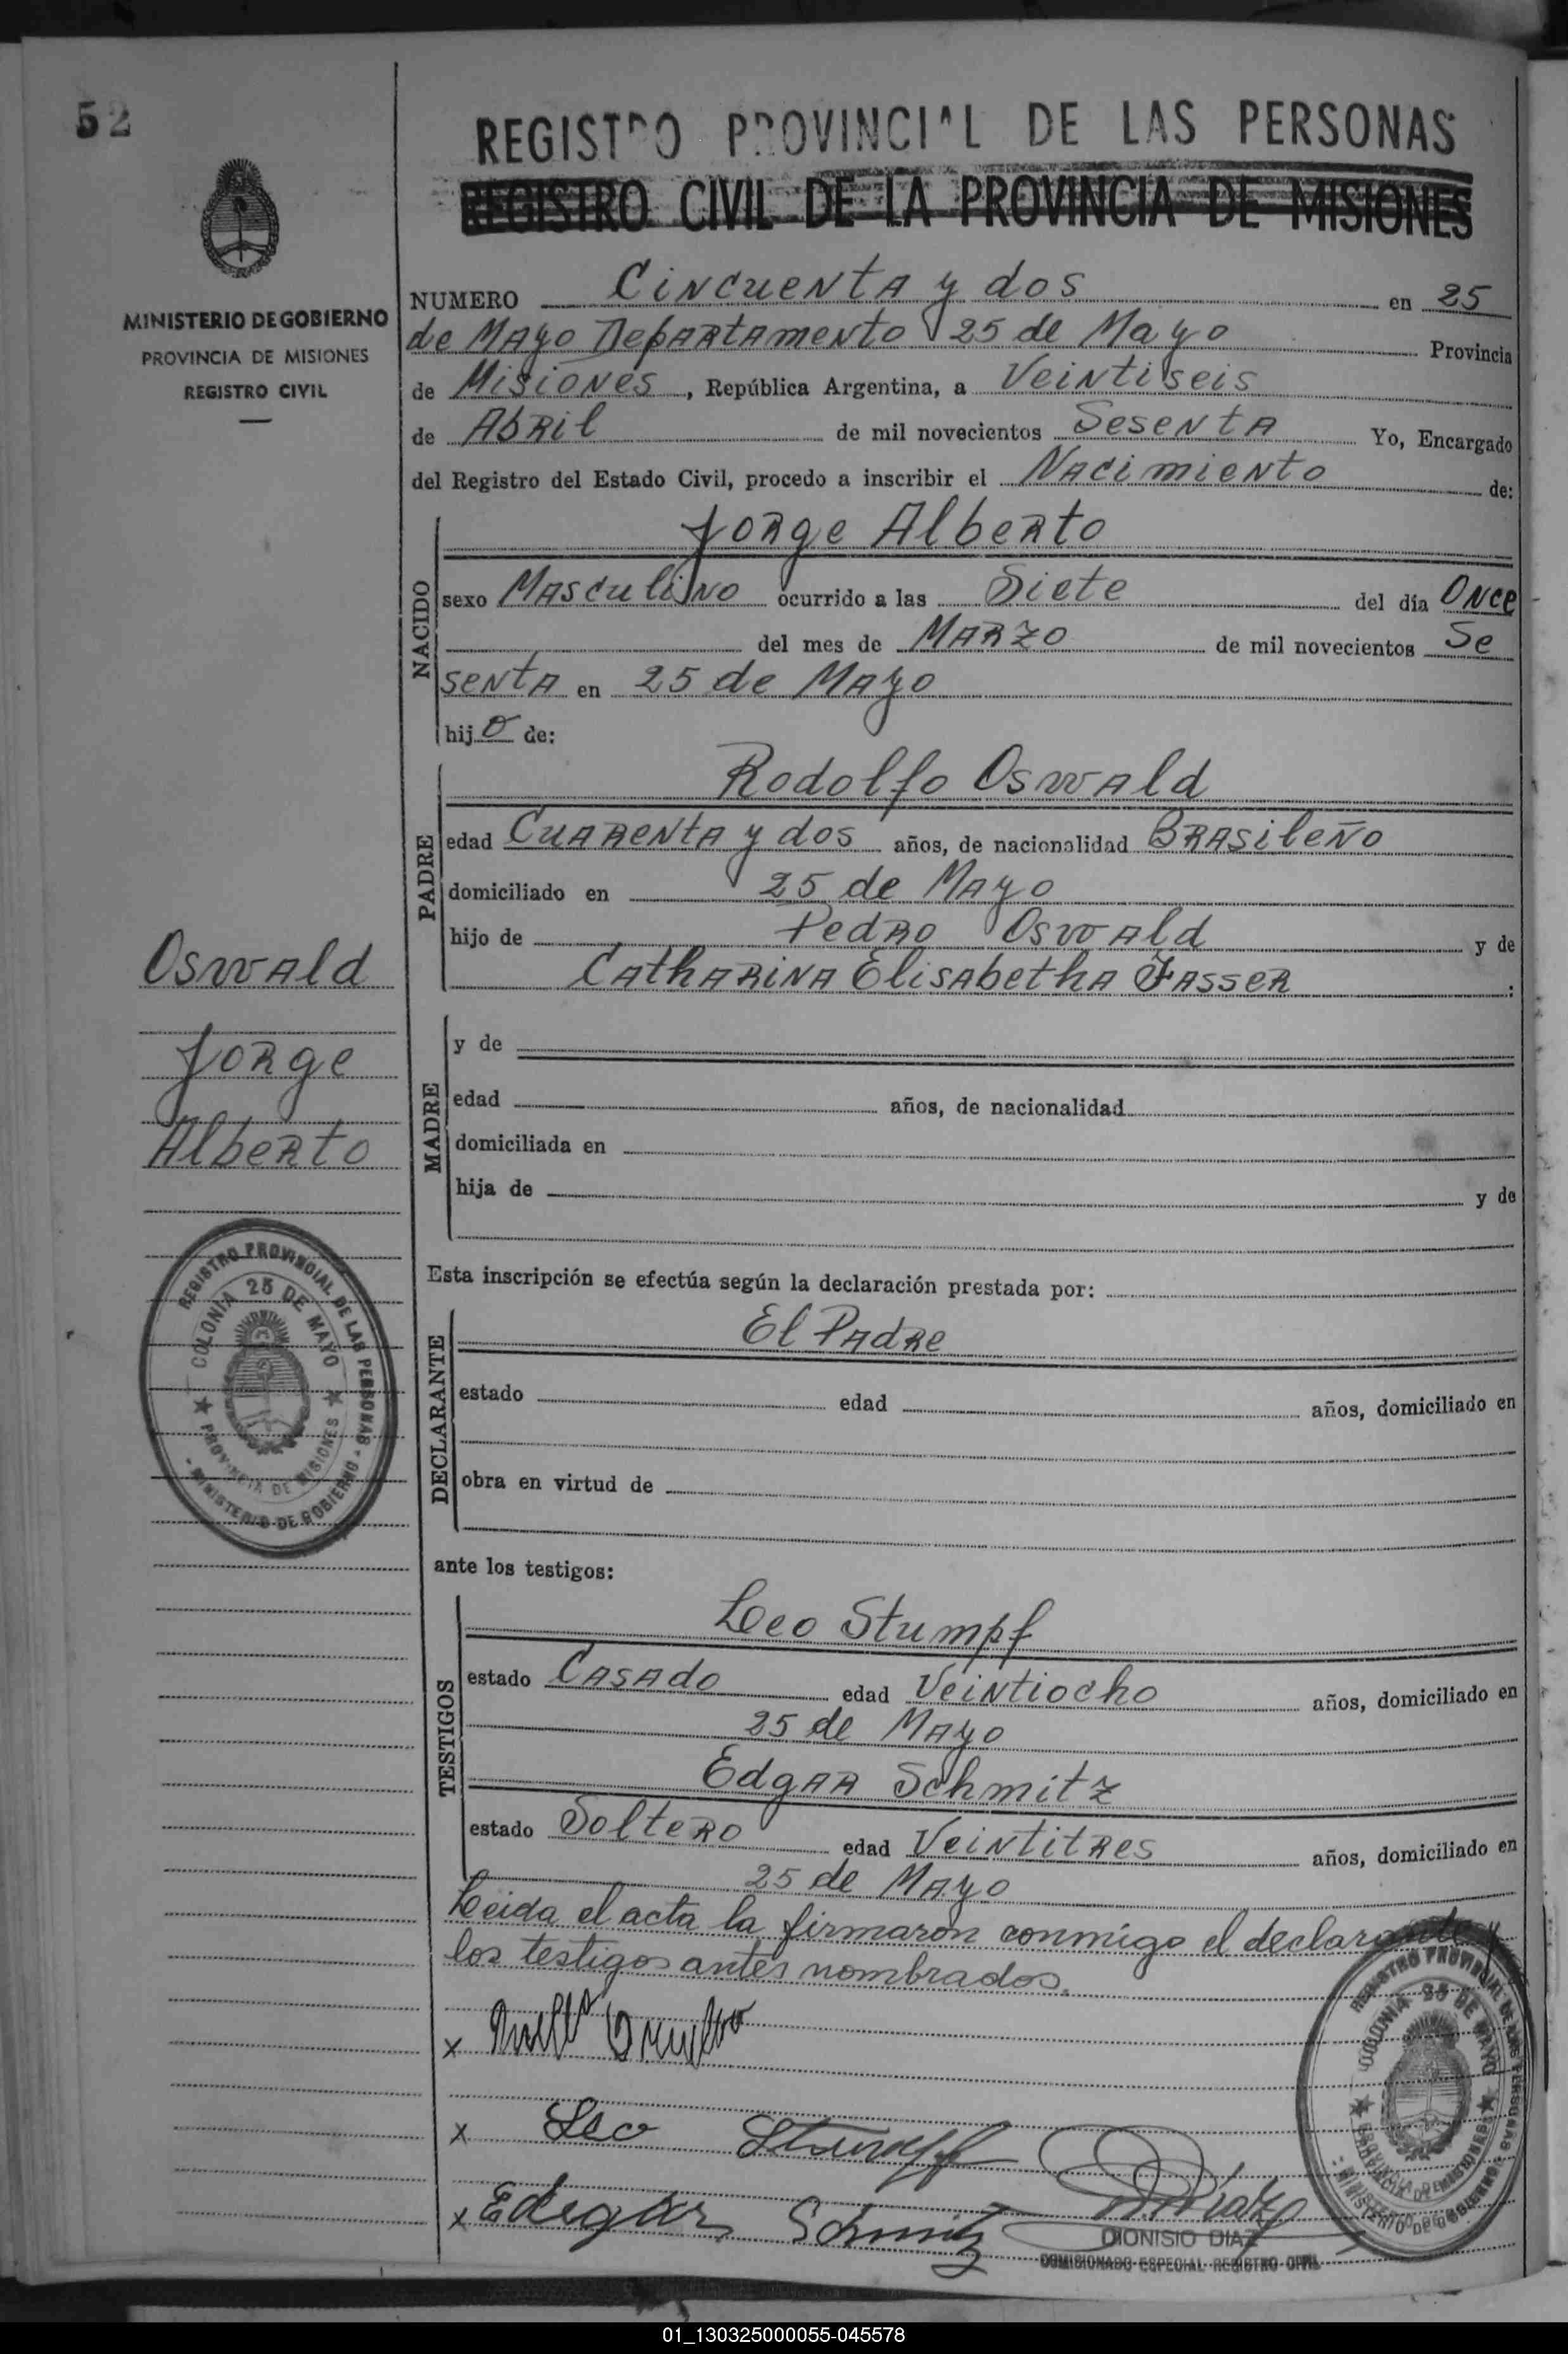 52
REGISTRO PROVINCIAL DE LAS PERSONAS
REGISTRO CIVIL DE LA PROVINCIA DE MISIONES
MINISTERIO DE GOBIERNO
PROVINCIA DE MISIONES
REGISTRO CIVIL
NUMERO Cincuenta y dos en 25
de Mayo Departamento 25 de Mayo Provincia
de Misiones, República Argentina, a Veintiseis
de Abril de mil novecientos Sesenta Yo, Encargado
del Registro del Estado Civil, procedo a inscribir el Nacimiento de:
NACIDO
Jorge Alberto
sexo Masculino ocurrido a las Siete del día Once
del mes de Marzo de mil novecientos Se
senta en 25 de Mayo
hijo de:
PADRE
Rodolfo Oswald
edad Cuarenta y dos años, de nacionalidad Brasileño
domiciliado en 25 de Mayo
hijo de Pedro Oswald y de
Catharina Elisabetha Fasser :
Oswald
Jorge
Alberto
MADRE
y de
edad años, de nacionalidad
domiciliada en
hija de y de
REGISTRO PROVINCIAL DE LAS PERSONAS - MINISTERIO DE GOBIERNO -
COLONIA 25 DE MAYO ★ PROVINCIA DE MISIONES ★
Esta inscripción se efectúa según la declaración prestada por:
DECLARANTE
El Padre
estado edad años, domiciliado en
obra en virtud de
ante los testigos:
TESTIGOS
Leo Stumpf
estado Casado edad Veintiocho años, domiciliado en
25 de Mayo
Edgar Schmitz
estado Soltero edad Veintitres años, domiciliado en
25 de Mayo
Leida el acta la firmaron conmigo el declarante y
los testigos antes nombrados.
x
x Leo Stumpf
x Edegar Schmitz
DIONISIO DIAZ
COMISIONADO ESPECIAL REGISTRO
REGISTRO PROVINCIAL DE LAS PERSONAS - MINISTERIO DE GOBIERNO -
COLONIA 25 DE MAYO ★ PROVINCIA DE MISIONES ★
01_130325000055-045578